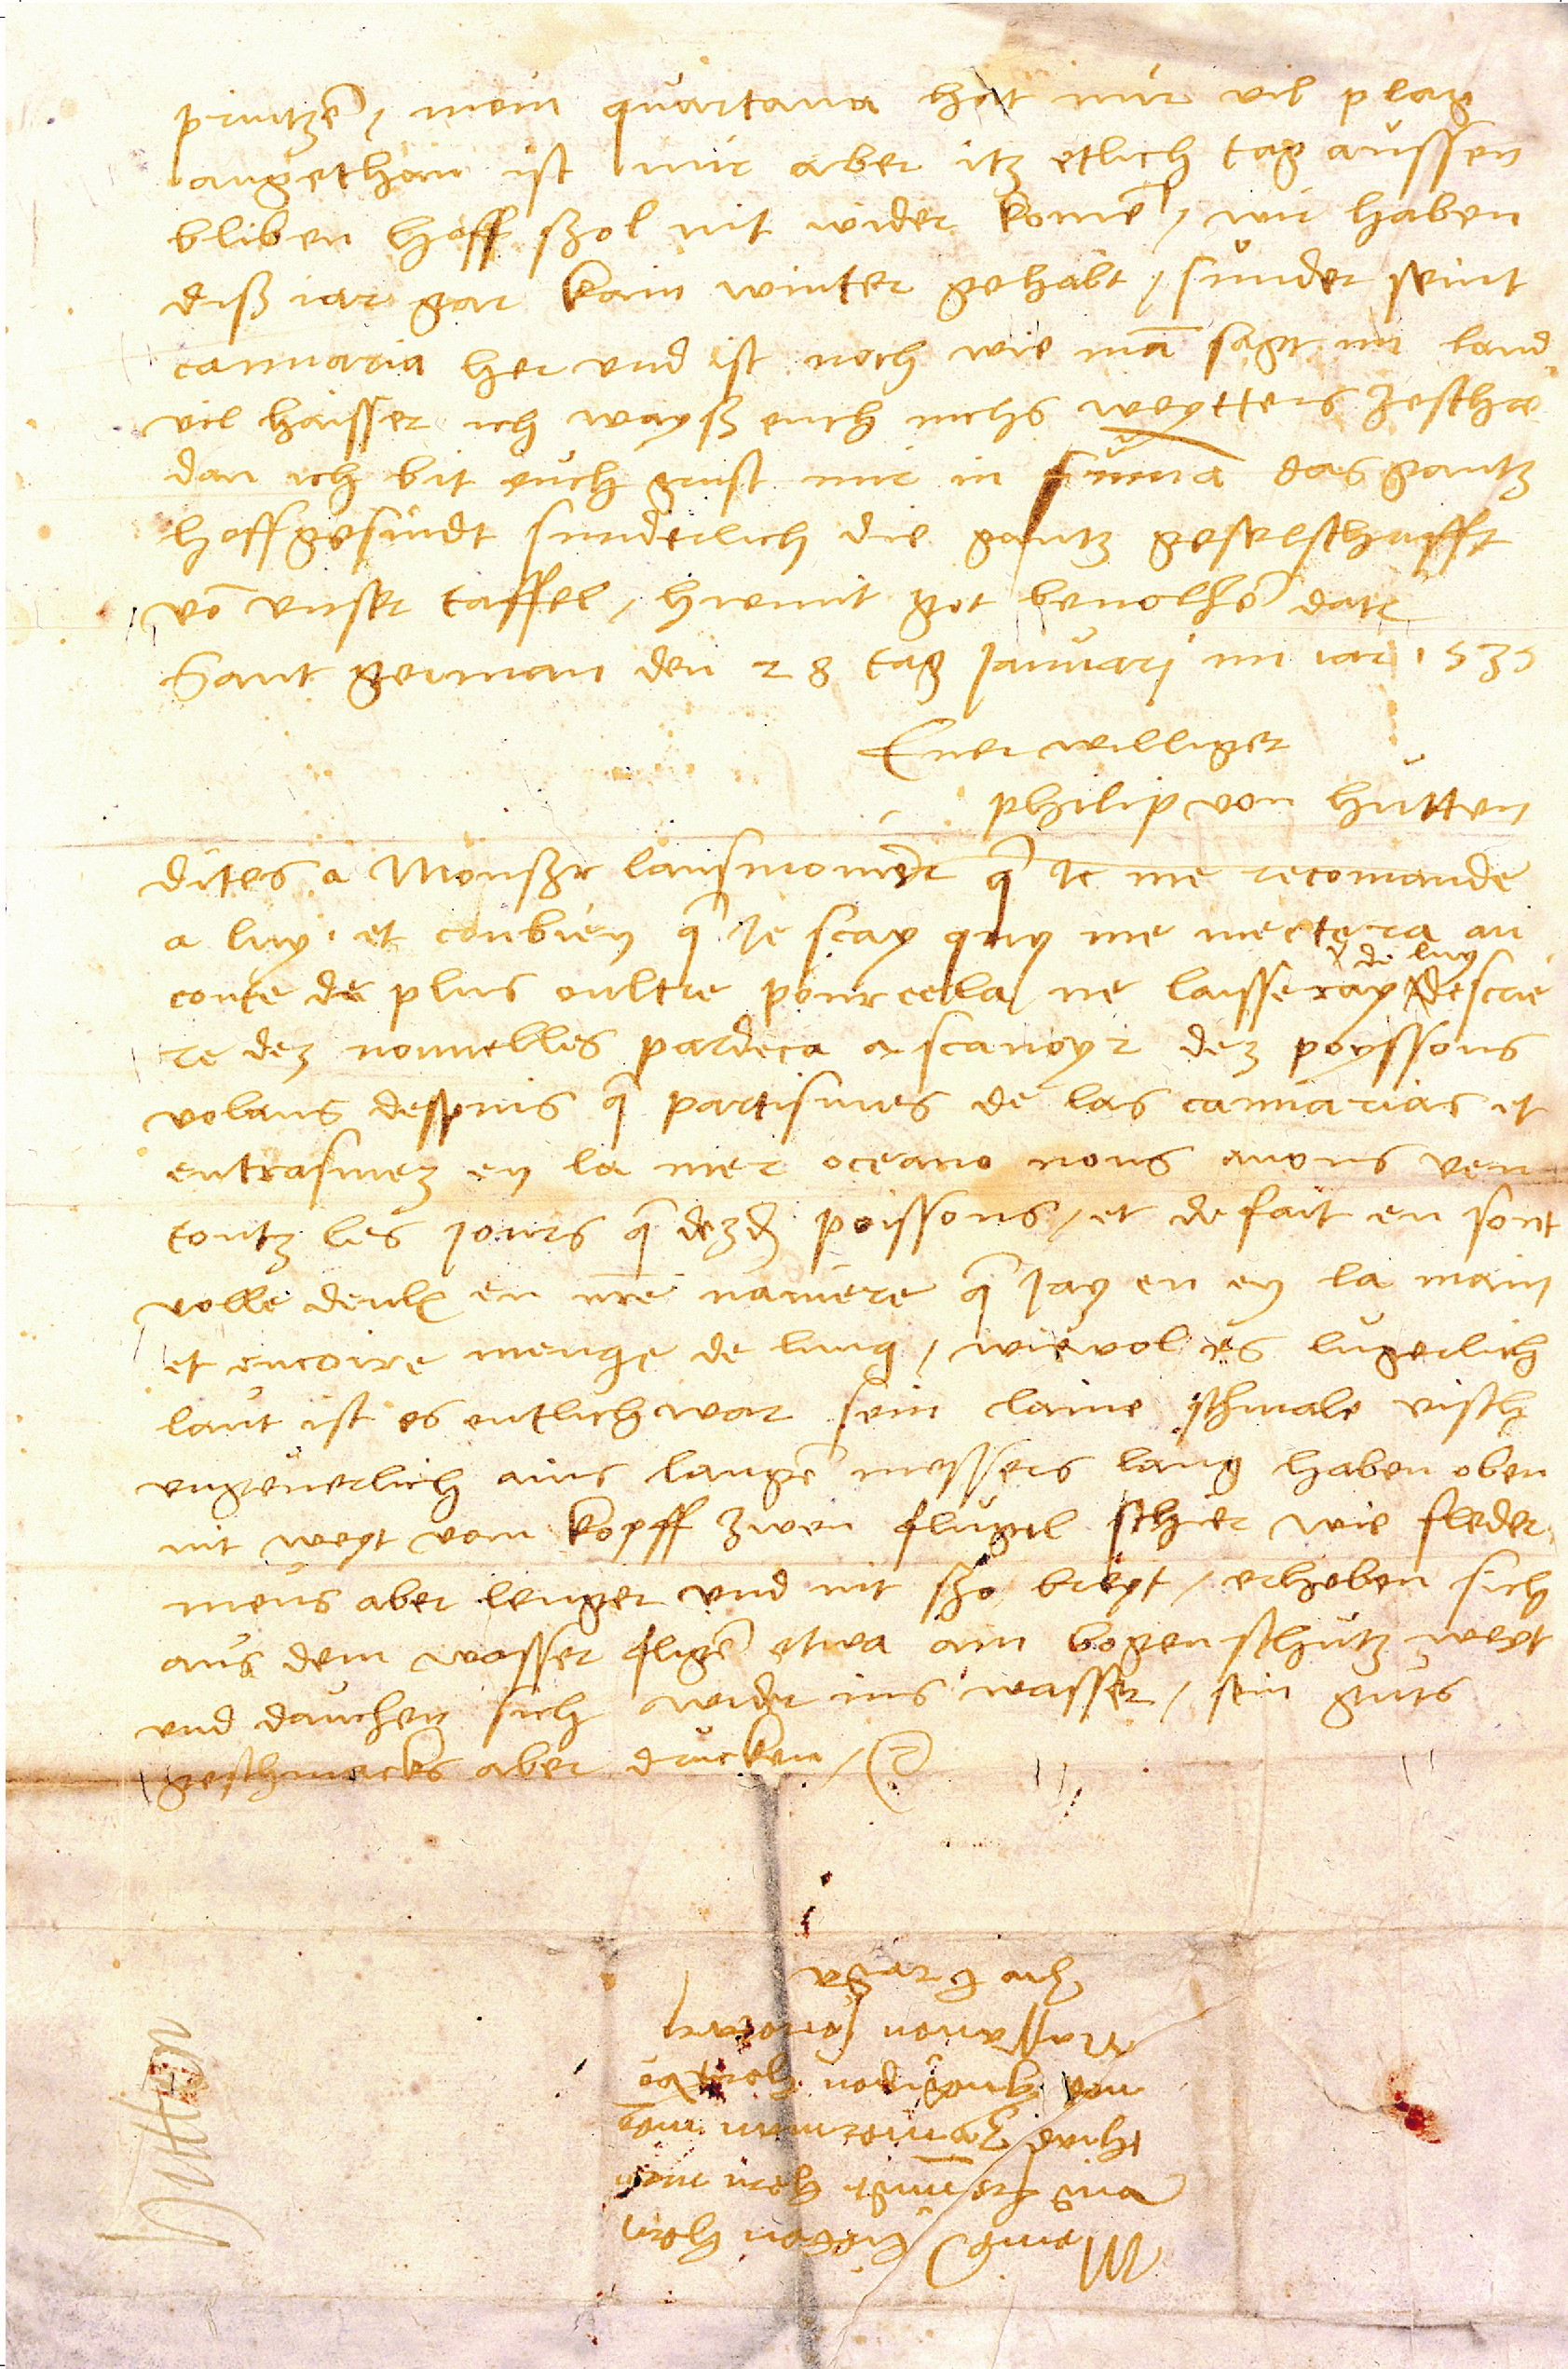 printzē / mein quartana hat mir vil plag
angethan ist mir aber itz etlich tag aussen
bliben hoff szol nit wider komē / wir haben
diß iar gar kain winter gehabt / sunder seint
cannaria her und ist noch wie mā sagt im land
vil haisser ich wayß euch nichs weytters zeschre
dan ich bit euch grust mir in sūma das gantz
hoffgesindt sunderlich die gantz geselschafft
vō unser taffel / hiemit got bevolhē dat
Sant german den 28 tag January im iar 1535
Euer williger
philip von hutten
dites a Monszr lansmomēr q̄ Je me recomande
a luy. et conbien q̄ Je scay quy me mectera au
conte de plus oultre pour cella / ne laisseray de luy descrie
re dez nouvelles pardeca a scavoyr dez poyssons
volans despuis q̄ partismes de las cannarias et
entrasmez en la mer oceano nous avons veu
toutz les Jours q̄ dezd poissons / et de fait en sont
volle deulx en nr̄e naviere q̄ Jay eu en la main
et encoire menge de lung / wievol es lugerlich
laut ist es entlich war sein laine schmale visch
ungeverlich ains langē messers lang haben oben
nit weyt vom kopff zwen flugel schier wie fleder
meus aber lenger und nit szo breyt / erheben sich
aus dem wasser fligē etwa am bogenschutz weyt
und dauchen sich wider ins wasser / sein guts
geschmacks aber drucken /
Meinē lieben hern
und freundt hern
Zymerman
gnedigen hern vō
Nassaw
Zu Breda
Hutten